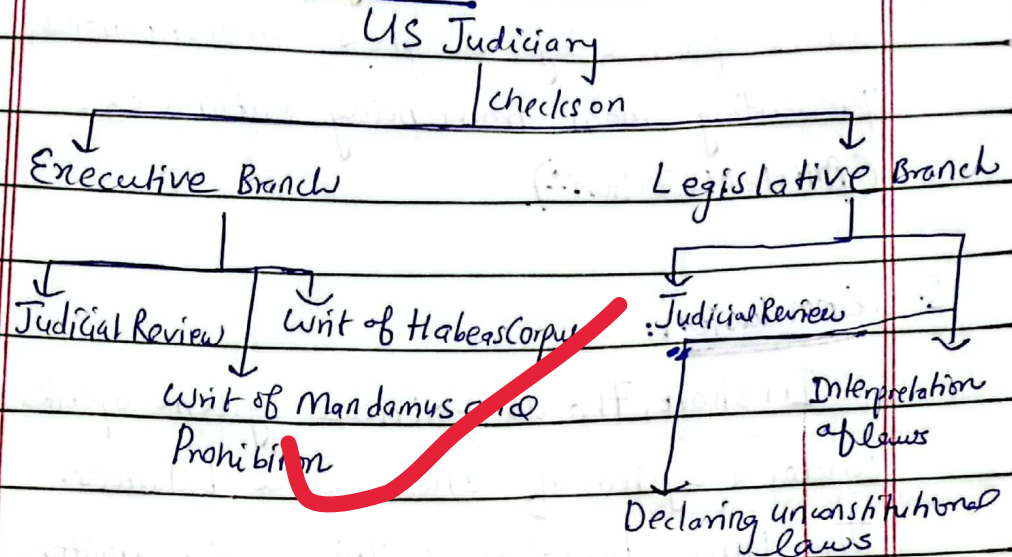 US Judiciary
checks on
Executive Branch
Legislative Branch
Judicial Review
Writ of Habeas Corpus
Judicial Review
Writ of Mandamus and
Prohibition
Interpretation
of laws
Declaring unconstitutional
laws